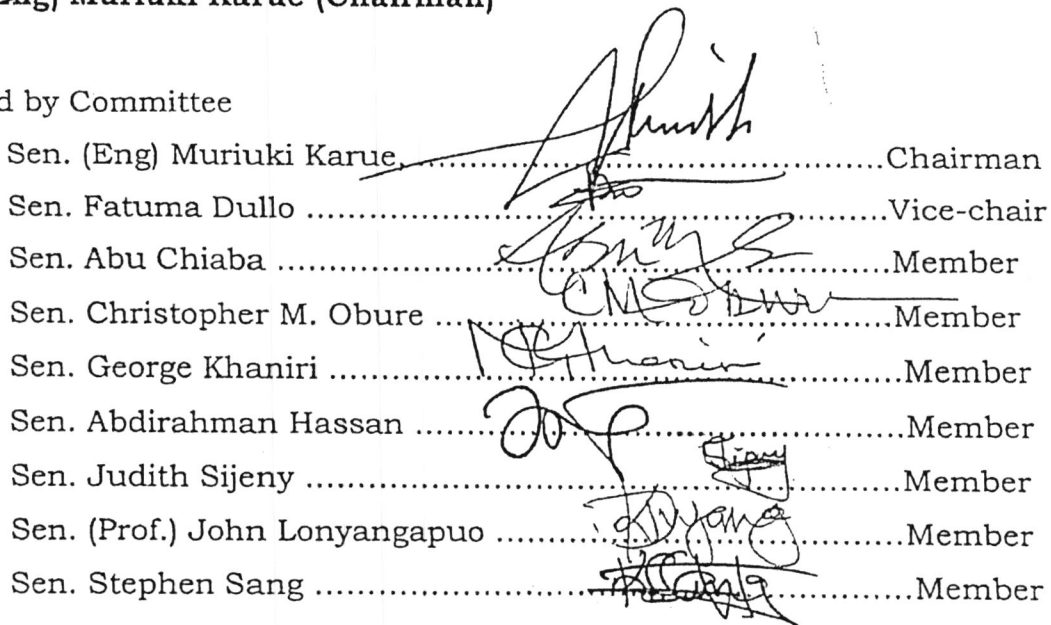 Eng) Muriuki Karue (Chairman)
d by Committee
Sen. (Eng) Muriuki Karue..............................................Chairman
Sen. Fatuma Dullo ......................................................Vice-chair
Sen. Abu Chiaba .........................................................Member
Sen. Christopher M. Obure ..........................................Member
Sen. George Khaniri ....................................................Member
Sen. Abdirahman Hassan ............................................Member
Sen. Judith Sijeny .......................................................Member
Sen. (Prof.) John Lonyangapuo .....................................Member
Sen. Stephen Sang ......................................................Member